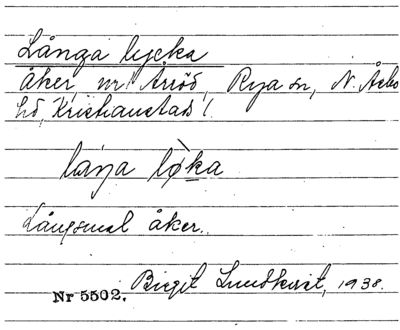 Långa lycka
åker, nr 1 Årröd, Rya sn, N. Åsbo
hd, Kristianstads l.
låŋa lø̀ka
Långsmal åker.
Birgit Lundkvist, 1938.
Nr 5502.